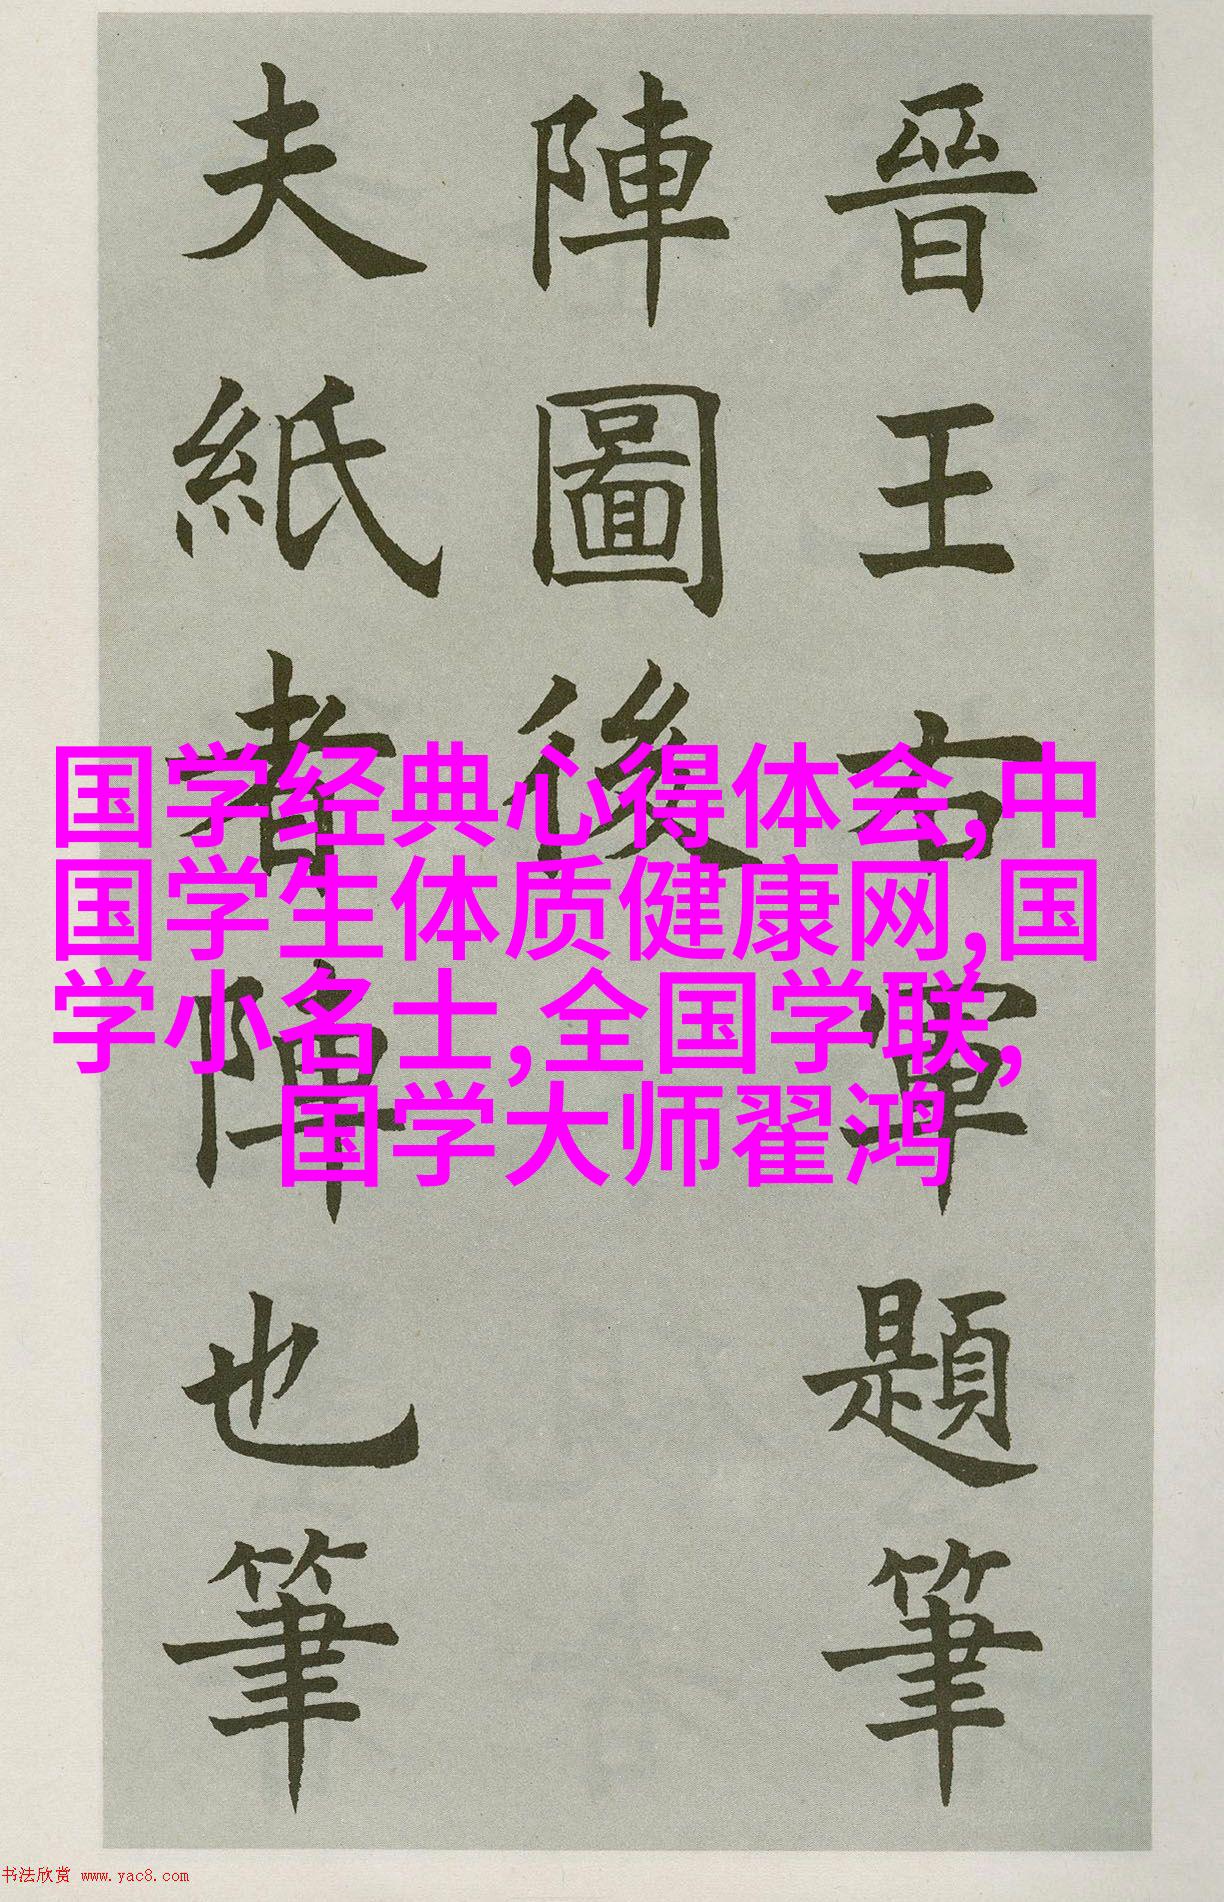 晉王右軍題筆
陣圖後
夫紙者陣也筆
国学经典心得体会,中
国学生体质健康网,国
学小名士,全国学联,
国学大师翟鸿
书法欣赏 www.yac8.com